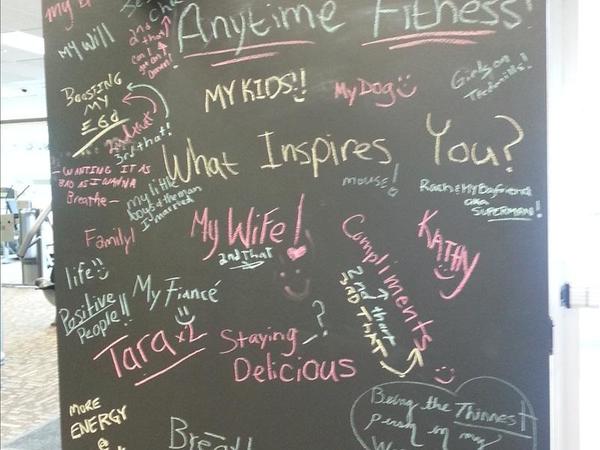 Anytime Fitness!
My Will
2nd that
MY KIDS!!
My Dog
Girls on
Treadmills!
Boosting
My
Ego
2nd that
3rd that!
What Inspires You?
- WANTING IT AS
BAD AS I WANNA
Breathe -
my little
boys & the man
I married
mouse!
Rach & My Boyfriend
aka
SUPERMAN!
Family!
My Wife!
2nd that
Compliments
2nd that
3RD THAT
KATHY
life
Positive
People!!
My Fiancé
Tara x2
Staying
Delicious
?
MORE
ENERGY
@
Being the Thinnest
Person in my